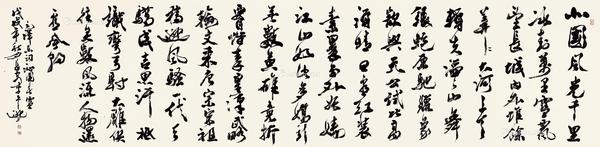 北國風光千里
冰封萬里雪飄
望長城內外惟餘
莽莽大河上下
頓失滔滔山舞
銀蛇原馳臘象
欲與天公試比高
須晴日看紅裝
素裹分外妖嬈
江山如此多嬌引
無數英雄競折
腰惜秦皇漢武略
輸文采唐宗宋祖
稍遜風騷一代天
驕成吉思汗祇
識彎弓射大雕俱
往矣數風流人物還
看今朝
毛澤東詞沁園春雪
戊戌年秋